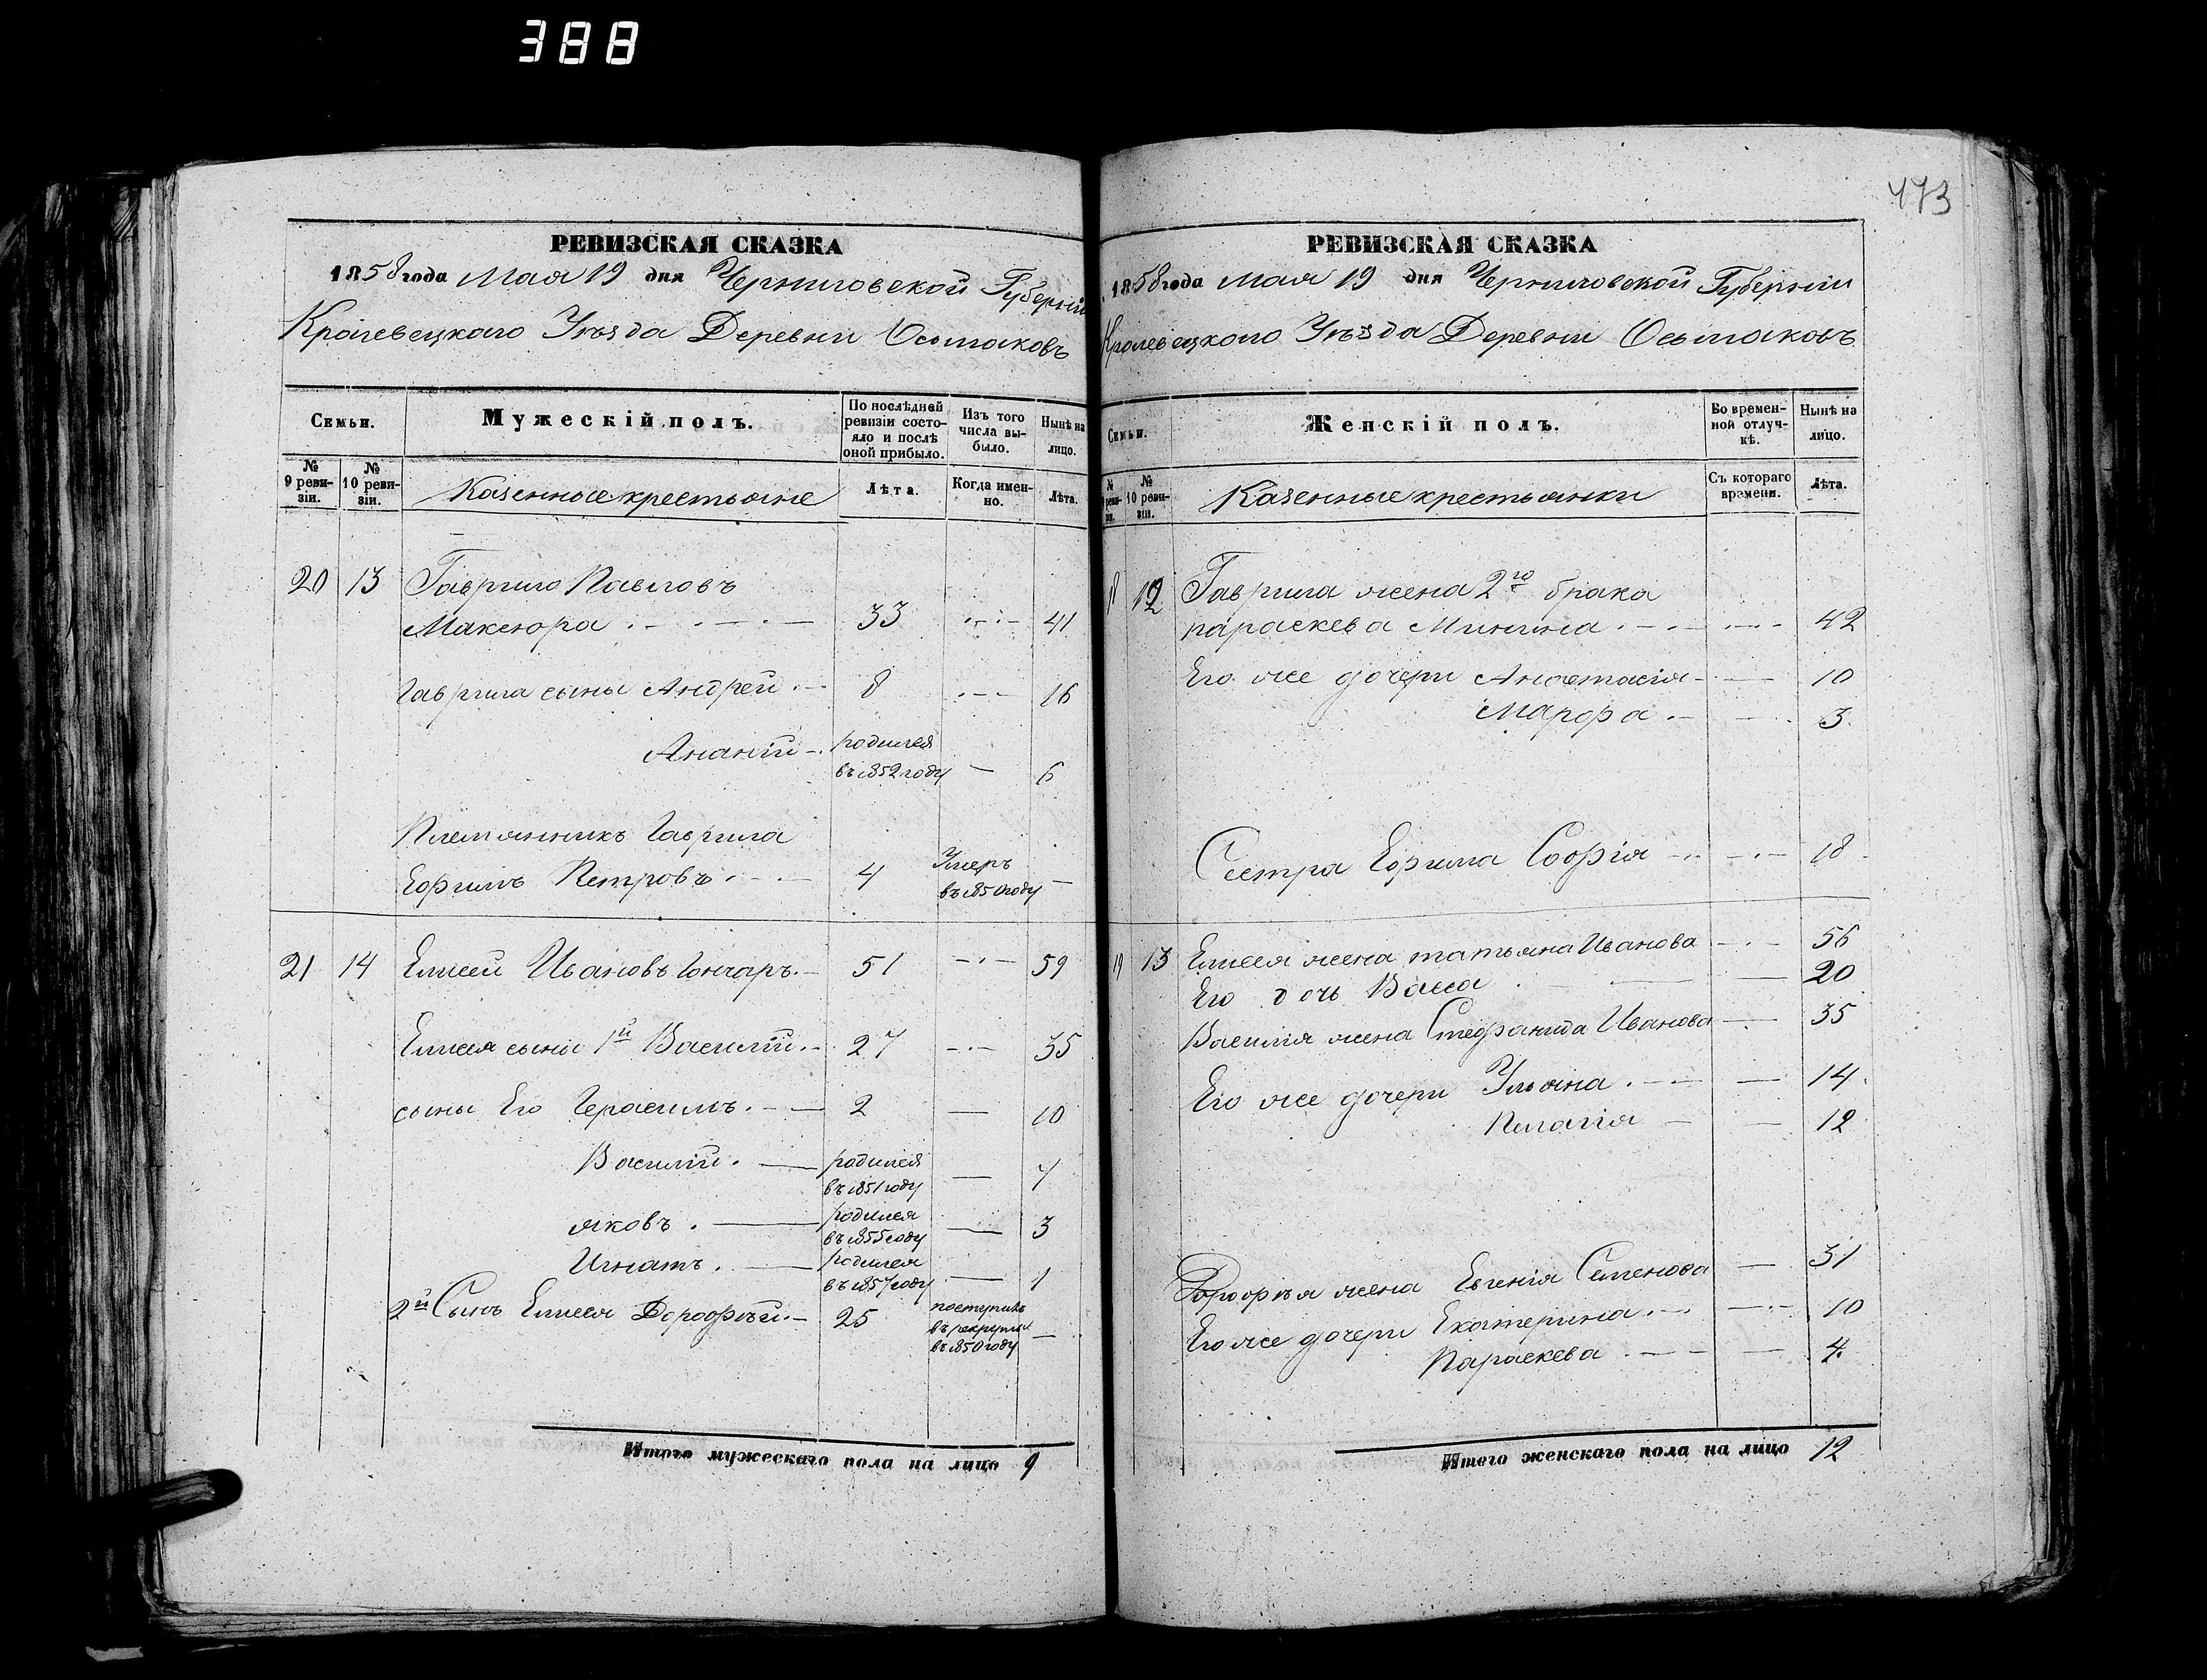 388
473
РЕВИЗСКАЯ СКАЗКА
1858 года Мая 19 дня Черниговской Губерніи
Кролевецкаго Уѣзда Деревни Осьмаковъ
Семьи.
Мужескій полъ.
По послѣдней ревизіи состояло и послѣ оной прибыло.
Изъ того числа выбыло.
Нынѣ на лицо.
№ 9 ревизіи.
№ 10 ревизіи.
Казенные крестьяне
Лѣта.
Когда именно.
Лѣта.
20 13 Гаврило Павловъ
Максюра 33 41
Гаврила сыны Андрей 8 16
Ананій родился
въ 1852 году 6
Племянникъ Гаврила
Ефимъ Петровъ 4 Умеръ
въ 1850 году
21 14 Елисей Ивановъ Гончаръ 51 59
Елисея сыны 1й Василій 27 35
сыны Его Герасимъ 2 10
Василій родился
въ 1851 году 7
яковъ родился
въ 1855 году 3
Игнатъ родился
въ 1857 году 1
2й Сынъ Елисея Дорофѣй 25 поступилъ
въ рекруты
въ 1850 году
Итого мужескаго пола на лицо 9
РЕВИЗСКАЯ СКАЗКА
1858 года Мая 19 дня Черниговской Губерніи
Кролевецкого Уѣзда Деревни Осьмаковъ
Семьи.
Женскій полъ.
Во временной отлучкѣ.
Нынѣ на лицо.
№ ревизіи.
№ 10 ревизіи.
Казенные крестьянки
Съ котораго времени.
Лѣта.
18 12 Гаврила жена 2го брака
параскева Минина 42
Его же дочери Анастасія 10
Марфа 3
Сестра Ефима Софія 18
19 13 Елисея жена татьяна Иванова 56
Его дочь Васса 20
Василія жена Стефанида Иванова 35
Его же дочери Ульяна 14
Пелагія 12
Дорофѣя жена Евгенія Семенова 31
Его же дочери Екатерина 10
Параскева 4
Итого женскаго пола на лицо 12